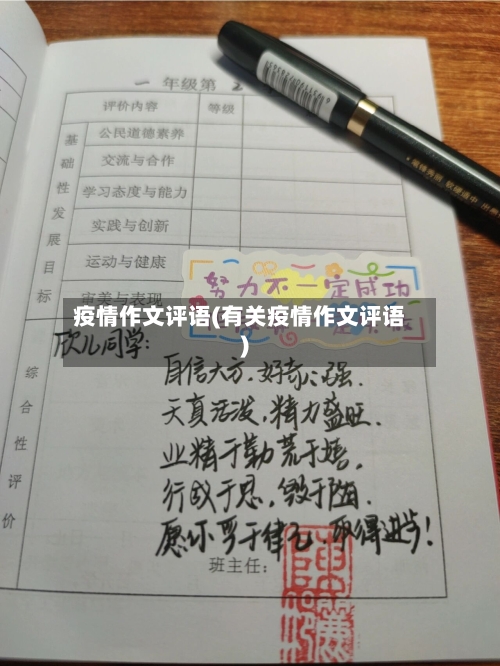 一 年级第 2
评价内容 等级
基础性发展目标
公民道德素养
交流与合作
学习态度与能力
实践与创新
运动与健康
审美与表现
努力不一定成功
疫情作文评语(有关疫情作文评语
)
综合性评价
欣儿同学:
自信大方.好奇心强.
天真活泼,精力盛旺.
业精于勤荒于嬉,
行成于思,毁于随.
愿你严于律己.取得进步!
班主任: